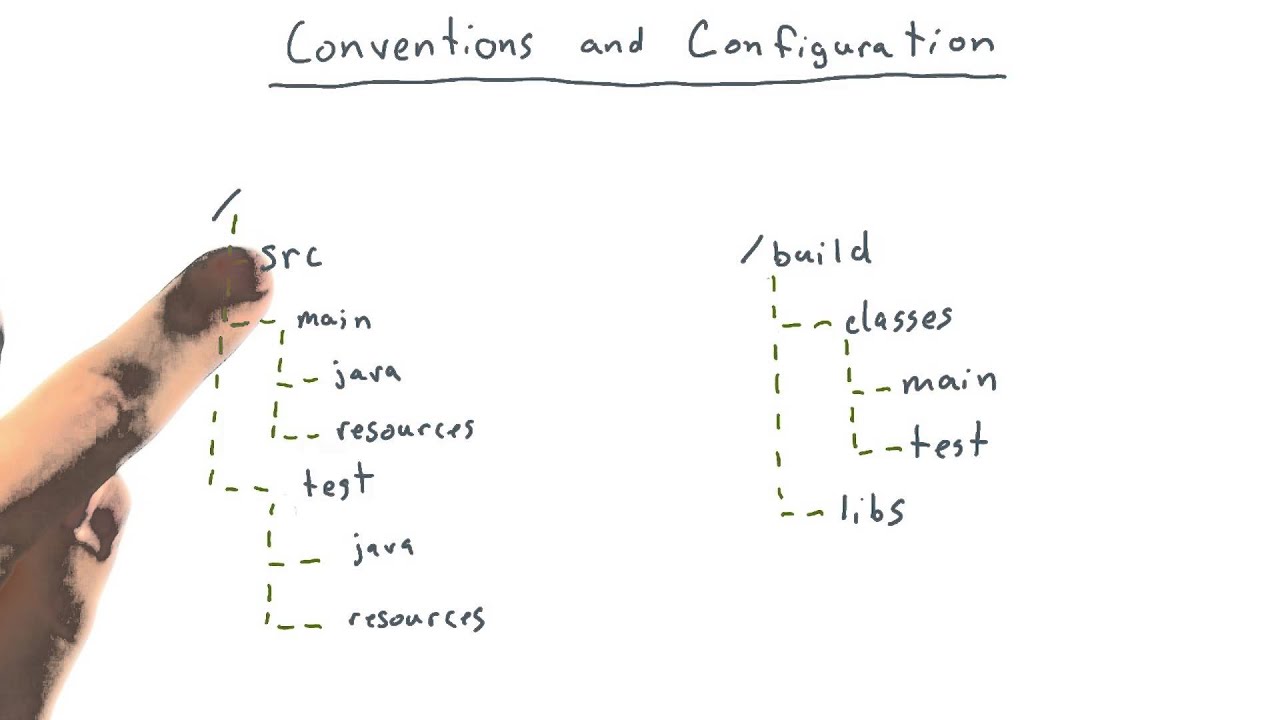 Conventions and Configuration
/
src
main
java
resources
test
java
resources
/build
classes
main
test
libs